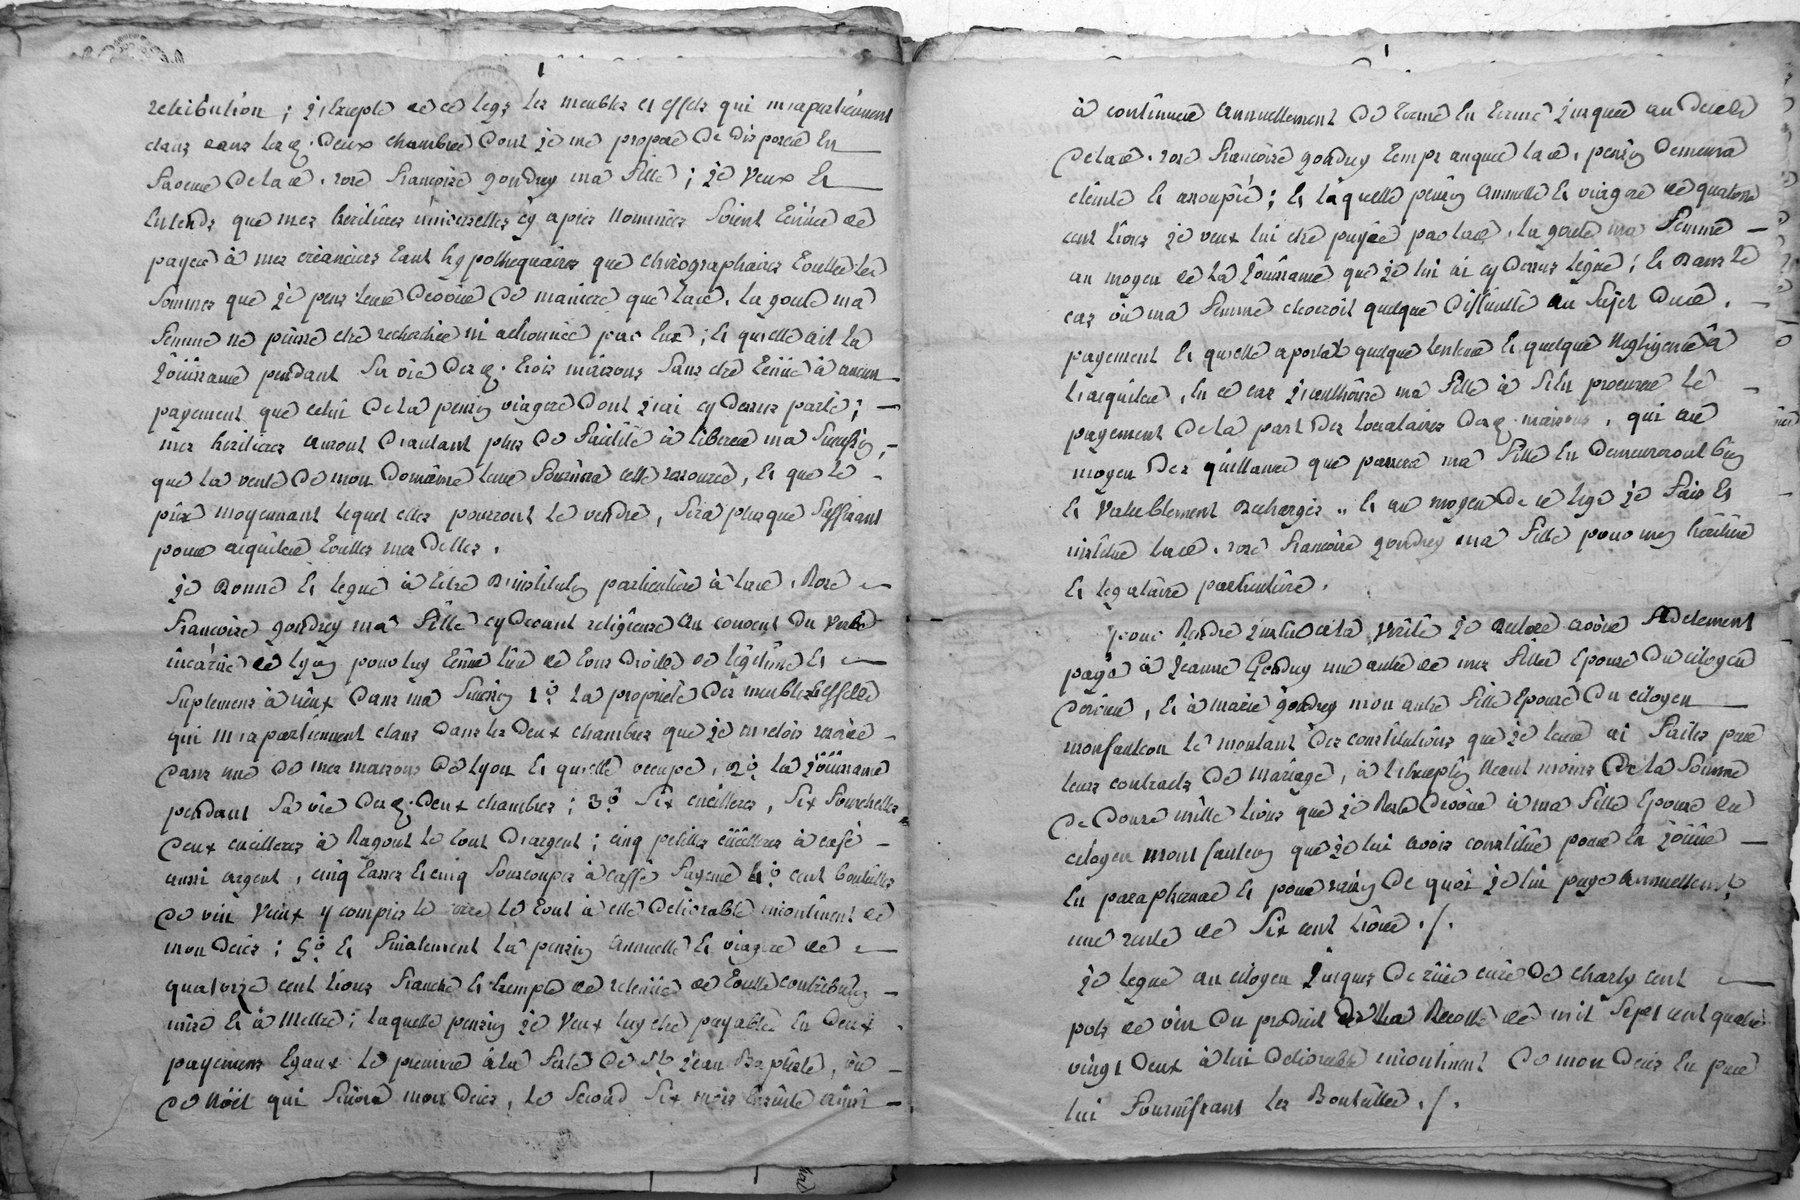 retribution ; j'Excepte de ce legs les meubles et effets qui m'apartiennent
dans lesq. deux chambres dont je me propose de disposer En
faveur de lad. rose francoise gondrey ma fille ; je veux Et
Entends que mes heritieres universelles cy apres nommées soient tenües de
payer à mes créanciers tant hypothequaires que chirographaires touttes les
sommes que je peus leur devoir de maniere que lad. la goute ma
femme ne puisse etre recherchée ni actionnée par Eux ; et qu'elle ait la
joüissance pendant sa vie desq. trois maisons sans etre tenüe à aucun
payement que celui de la pension viagere dont j'ai cy dessus parlé ;
mes heritieres auront d'autant plus de facilité à liberer ma succession,
que la vente de mon domaine leur fournira cette ressource, et que le
prix moyennant lequel elles pourront le vendre, sera plus que suffisant
pour acquitter touttes mes dettes.
je donne et legue à titre d'institution particuliere à lad. Rose
francoise gondrey ma fille cy devant religieuse au couvent du verbe
incarné de lyon pour luy tenir lieu de tous droits de légitime et
suplement à iceux dans ma succession 1° la proprieté des meubles et effets
qui m'apartiennent dans les deux chambres que je m'etois reservé
dans une de mes maisons de lyon et qu'elle occupe, 2° la joüissance
pendant sa vie desq. deux chambres ; 3° six cuilleres, six fourchettes,
deux cuilleres à Ragout le tout d'argent ; cinq petittes cuilleres à café
aussi argent, cinq tasses et cinq soucoupes à caffé fayence 4° cent bouteilles
de vin vieux y compris le verre le tout à elle delivrable incontinent de
mon deces ; 5° et finalement la pension annuelle et viagere de
quatorze cent livres franche et exempte de retenües de toutte contribution
mise et à mettre ; laquelle pension je veux luy etre payable en deux
payemens Egaux le premier à la fete de St jean Baptiste, ou
de Noël qui suivra mon deces, le second six mois ensuite ainsi
à continuer annuellement de terme en terme jusques au deces
de lad. rose francoise gondrey temps auquel lad. pension demeura
eteinte et assoupie ; et laquelle pension annuelle et viagere de quatorze
cent livres je veux lui etre payée par lad. la goute ma femme
au moyen de la joüissance que je lui ai cy dessus legué ; et dans le
cas où ma femme eleveroit quelque difficulté au sujet dud.
payement et qu'elle aportat quelque lenteur et quelque negligence à
l'acquiter, en ce cas j'authorise ma fille à s'en procurer le
payement de la part des locataires desq. maisons, qui au
moyen des quittances que passera ma fille en demeureront bien
et valablement dechargés .. et au moyen de ce legs je fais et
institue lad. rose francoise gondrey ma fille pour mon heritiere
et legataire particuliere.
pour Rendre justice à la verité je declare avoir reelement
payé à jeanne Gondrey une autre de mes filles Epouse du citoyen
, et à marie gondrey mon autre fille Epouse du citoyen
monfaulcon le montant des constitutions que je leur ai faites par
leurs contracts de mariage, à l'exception neant moins de la somme
de douze mille livres que je Reste devoir à ma fille Epouse du
citoyen montfaulcon que je lui avois constitué pour en joüir
en paraphernal et pour raison de quoi je lui paye annuellement
une rente de six cent livres ./.
je legue au citoyen jacques curé de charly cent
pots de vin du produit de la Recolte de mil sept cent quatre
vingt deux à lui delivrable incontinent de mon deces En par
lui fournissant les Bouteilles ./.